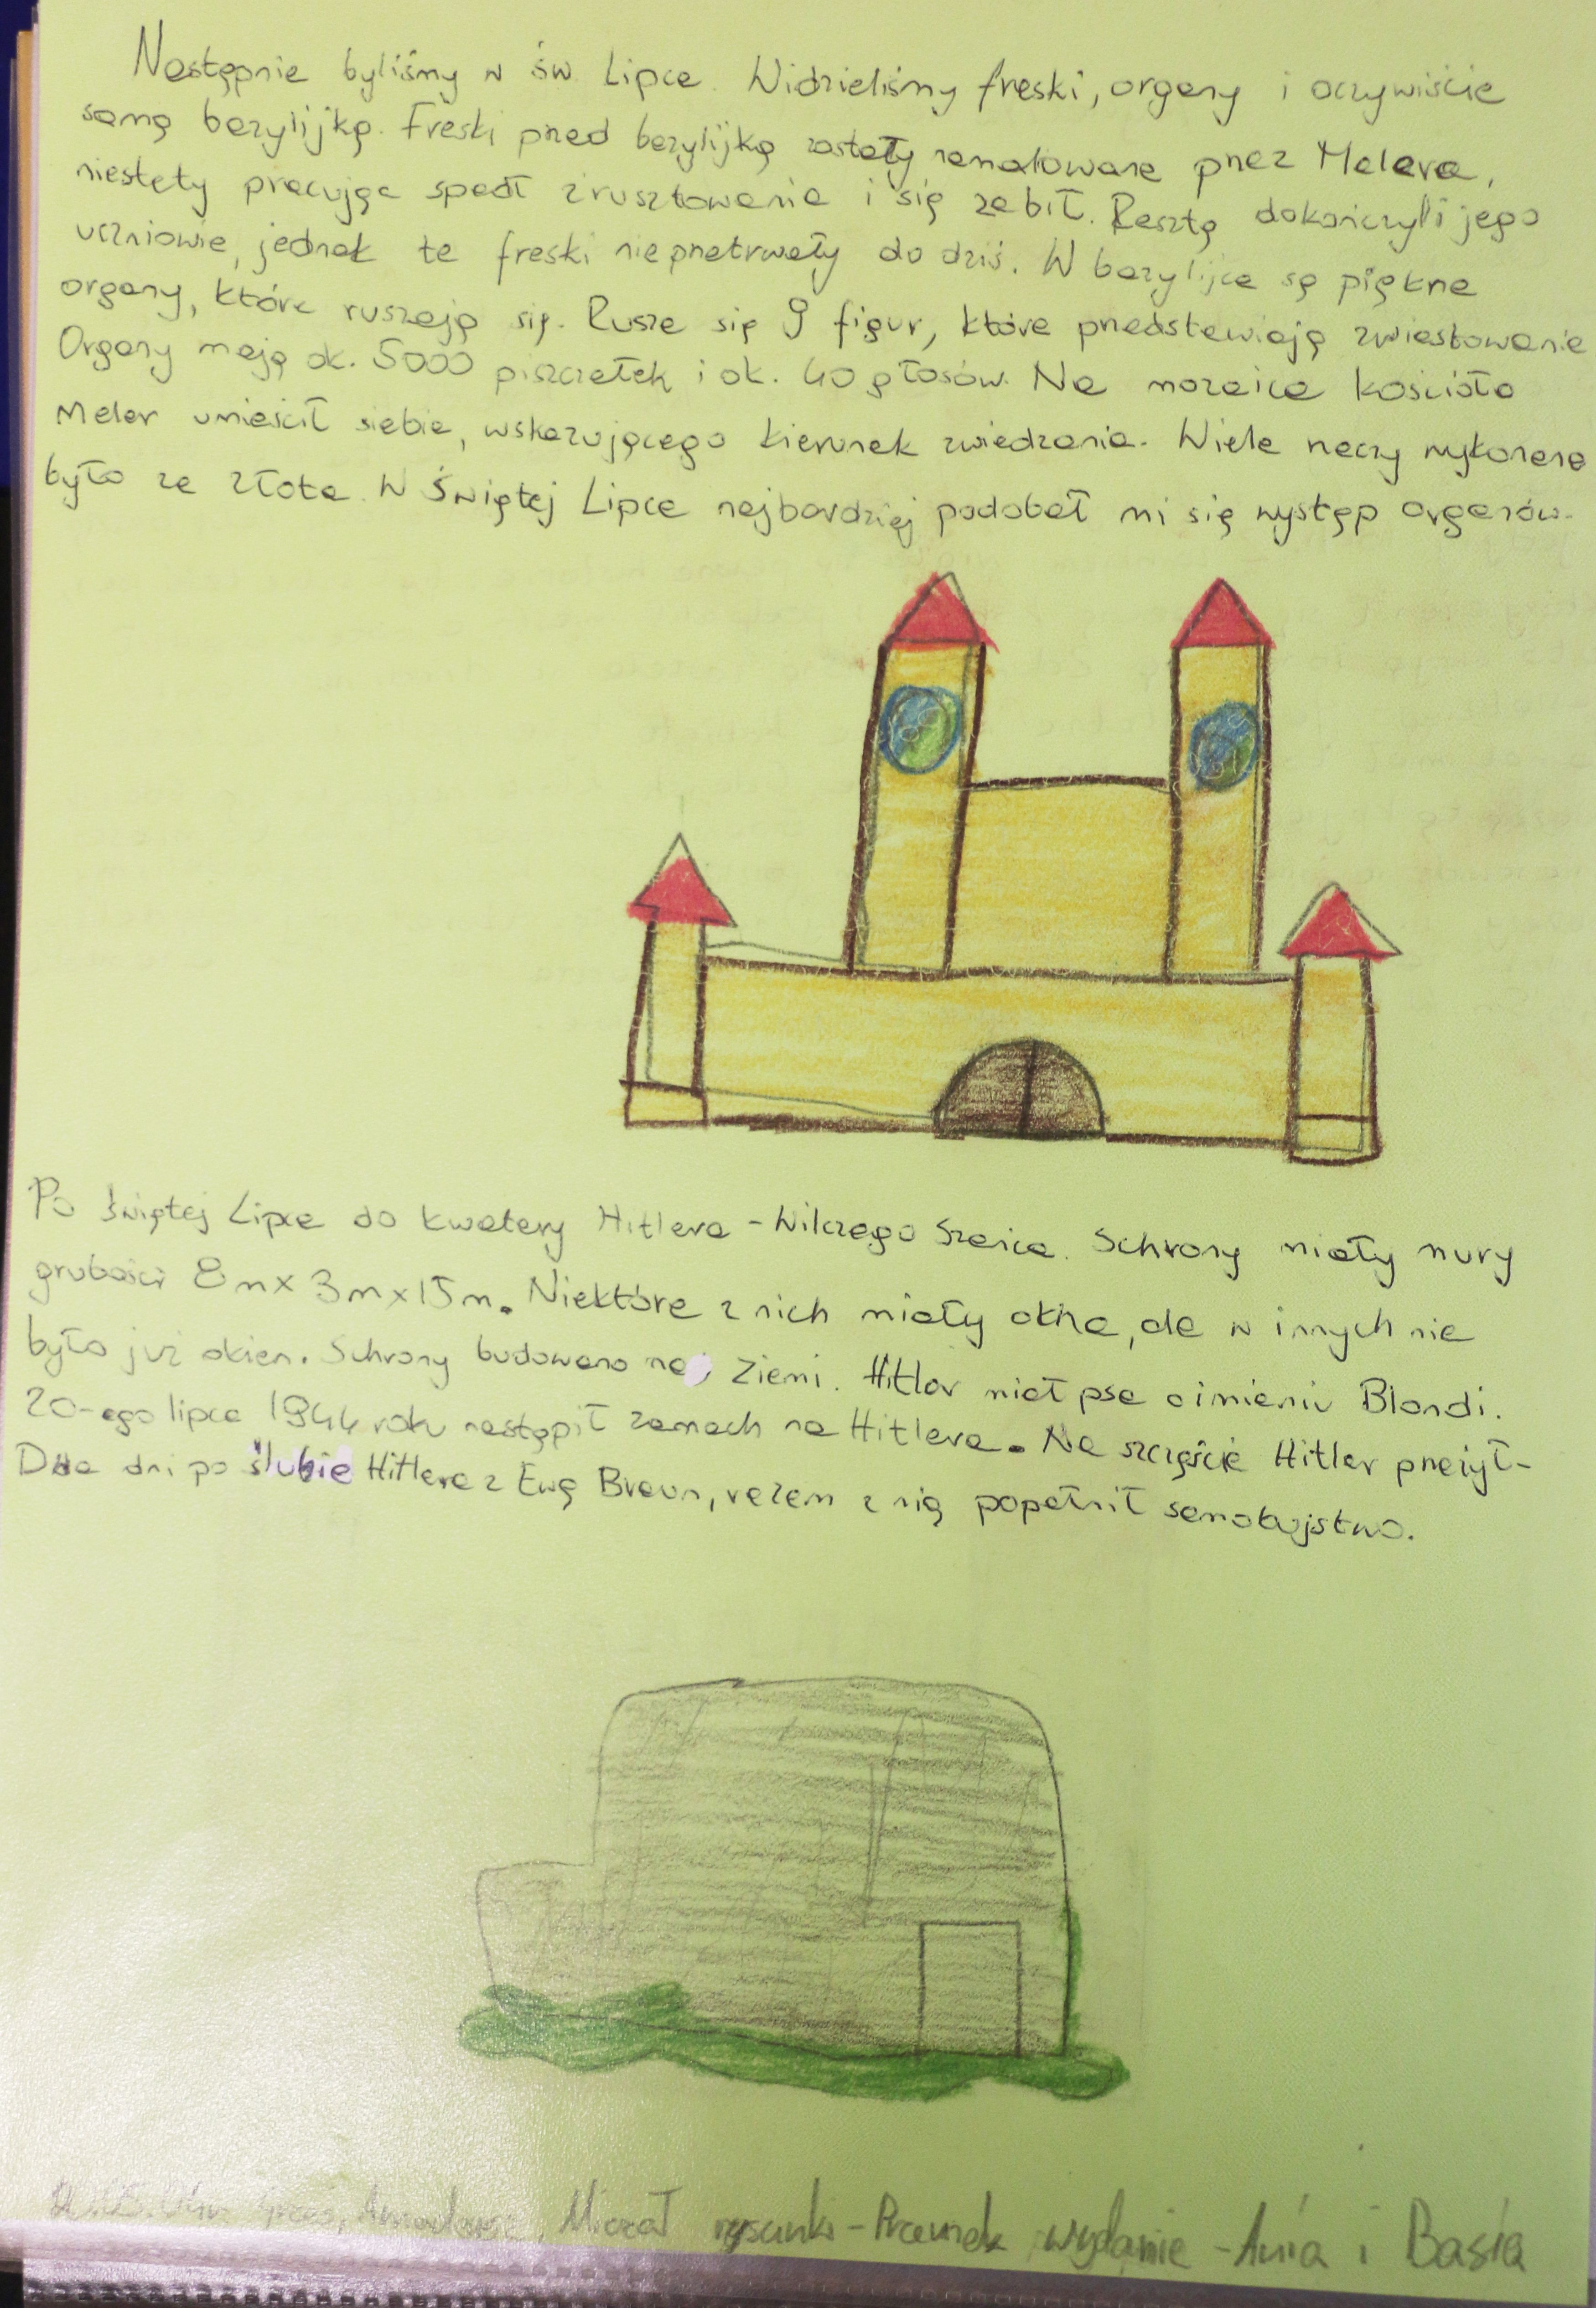 Następnie byliśmy w św Lipce. Widzieliśmy freski, organy i oczywiście
samą bazylijkę. Freski pned bazylijką zostały namalowane pnez Malera,
niestety pracując spadł z rusztowania i się zabił. Resztę dokończyli jego
uczniowie, jednak te freski nie pnetrwały do dziś. W bazylijce są piękne
organy, które ruszają się. Rusza się 9 figur, które pnedstawiają zwiastowanie
Organy mają ok. 5000 piszczałek i ok. 40 głosów. Na mozaice kościoła
Maler umieścił siebie, wskazującego kierunek zwiedzania. Wiele neczy wykonane
było ze złota. W Świętej Lipce najbardziej podobał mi się występ organów.
Po Świętej Lipce do kwatery Hitlera - Wilczego Szańca. Schrony miały mury
grubości 8m x 3m x 15m. Niektóre z nich miały okna, ale w innych nie
było już okien. Schrony budowano na ziemi. Hitler miał psa o imieniu Blondi.
20-ego lipca 1944 roku nastąpił zamach na Hitlera. Na szczęście Hitler pneżył-
Dwa dni po ślubie Hitlera z Ewą Braun, razem z nią popełnił samobujstwo.
Michał rysunki - wydanie - Ania i Basia